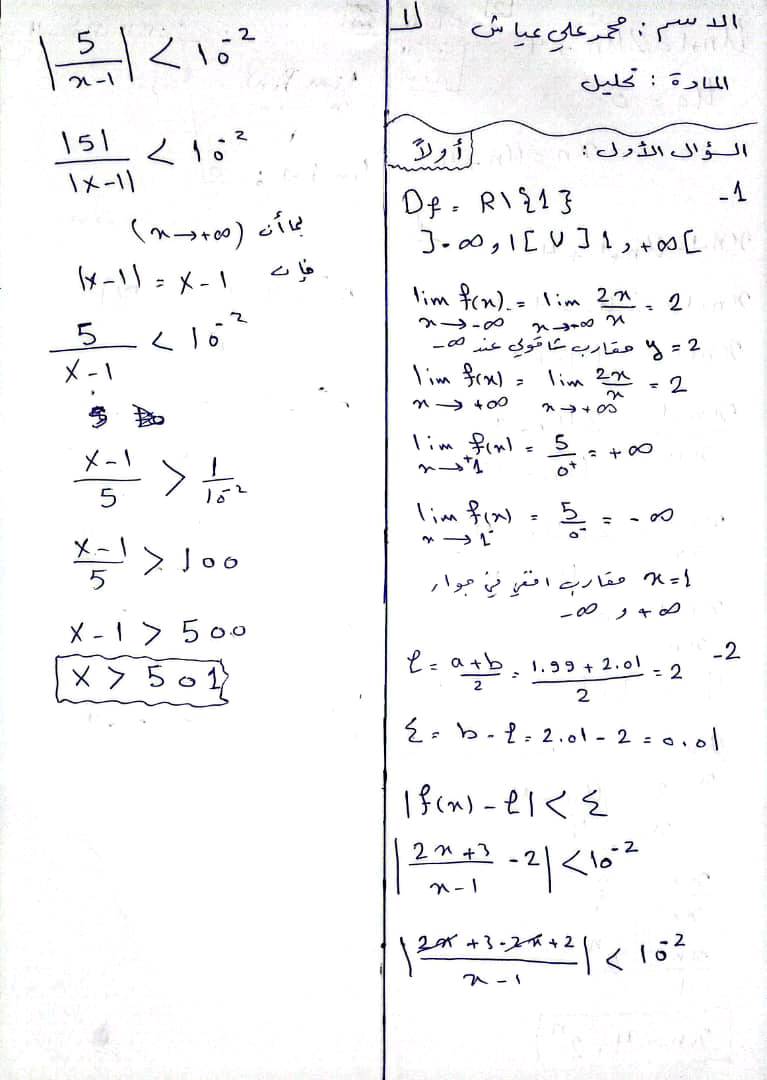 الاسم : محمد علي عياش
1
المادة : تحليل
السؤال الأول : أولاً
1-
Df = R\{1}
]-∞, 1[ U ]1, +∞[
lim f(x) = lim 2x/x = 2
x→-∞ x→+∞
y = 2 مقارب شاقولي عند -∞
lim f(x) = lim 2x/x = 2
x→+∞ x→+∞
lim f(x) = 5/0⁺ = +∞
x→⁺1
lim f(x) = 5/0⁻ = -∞
x→1⁻
x=1 مقارب افقي في جوار
+∞ و -∞
2-
ℓ = a+b/2 = 1.99 + 2.01/2 = 2
ε = b - ℓ = 2.01 - 2 = 0.01
|f(x) - ℓ| < ε
|2x+3/x-1 - 2| < 10⁻²
|2x+3-2x+2/x-1| < 10⁻²
|5/x-1| < 10⁻²
|5|/|x-1| < 10⁻²
بما أن (x→+∞)
فإن |x-1| = x-1
5/x-1 < 10⁻²
x-1/5 > 1/10⁻²
x-1/5 > 100
x-1 > 500
x > 501